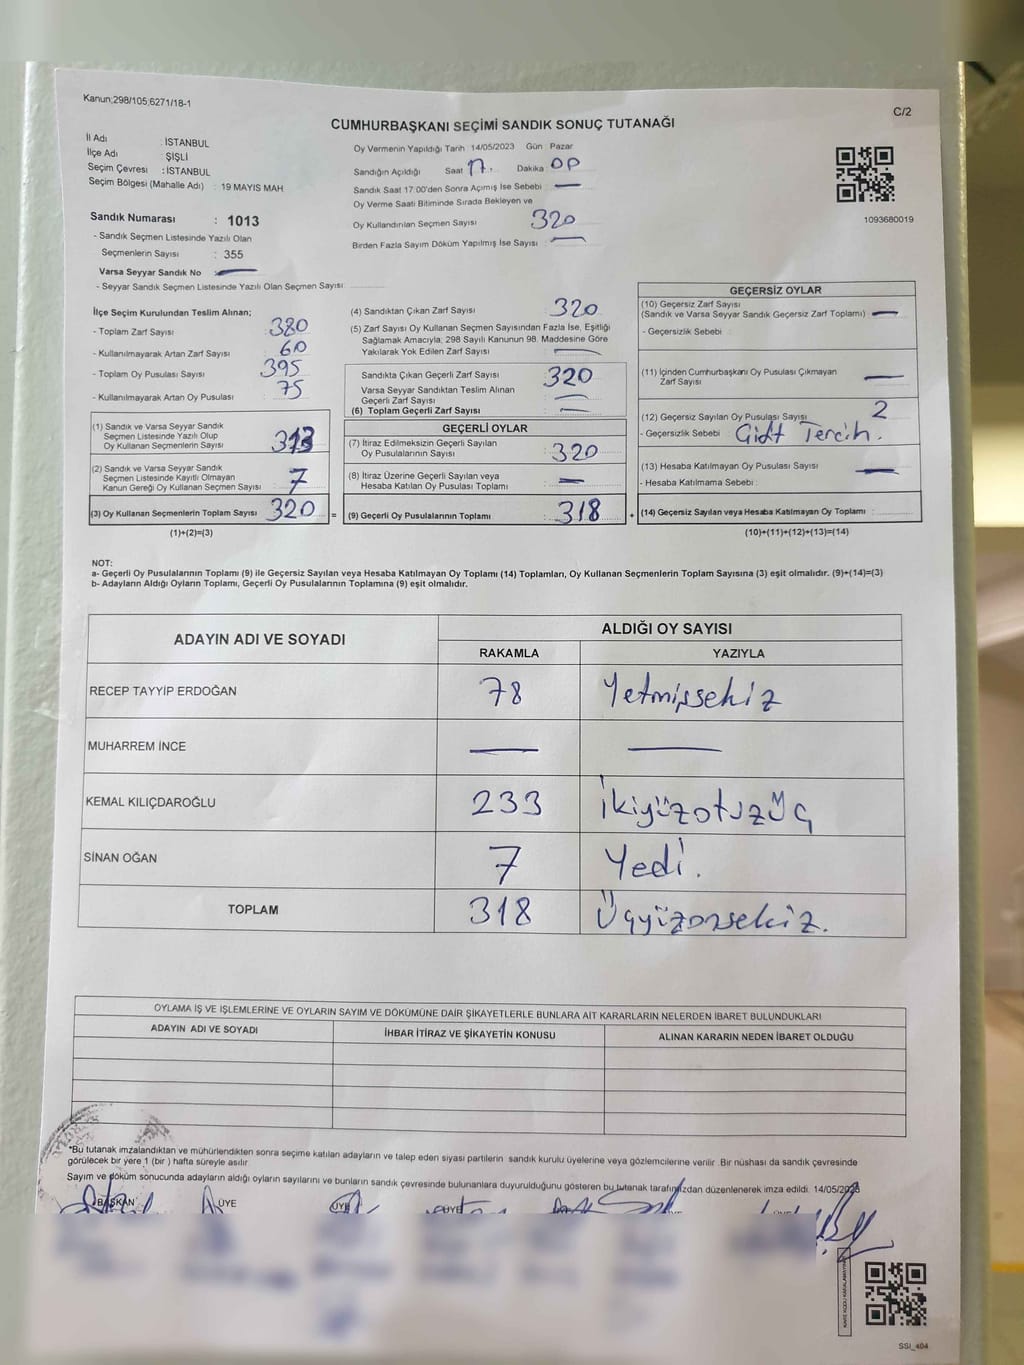 Kanun;298/105;6271/18-1
C/2
CUMHURBAŞKANI SEÇİMİ SANDIK SONUÇ TUTANAĞI
İl Adı : İSTANBUL
İlçe Adı : ŞİŞLİ
Seçim Çevresi : İSTANBUL
Seçim Bölgesi (Mahalle Adı) : 19 MAYIS MAH
Sandık Numarası : 1013
- Sandık Seçmen Listesinde Yazılı Olan
Seçmenlerin Sayısı : 355
Varsa Seyyar Sandık No :
- Seyyar Sandık Seçmen Listesinde Yazılı Olan Seçmen Sayısı:
Oy Vermenin Yapıldığı Tarih 14/05/2023 Gün Pazar
Sandığın Açıldığı Saat 17. Dakika
Sandık Saat 17:00'den Sonra Açımış İse Sebebi :
Oy Verme Saati Bitiminde Sırada Bekleyen ve
Oy Kullandırılan Seçmen Sayısı 320
Birden Fazla Sayım Döküm Yapılmış İse Sayısı :
1093680019
İlçe Seçim Kurulundan Teslim Alınan;
- Toplam Zarf Sayısı : 380
- Kullanılmayarak Artan Zarf Sayısı : 60
- Toplam Oy Pusulası Sayısı : 395
- Kullanılmayarak Artan Oy Pusulası : 75
(1) Sandık ve Varsa Seyyar Sandık
Seçmen Listesinde Yazılı Olup
Oy Kullanan Seçmenlerin Sayısı : 313
(2) Sandık ve Varsa Seyyar Sandık
Seçmen Listesinde Kayıtlı Olmayan
Kanun Gereği Oy Kullanan Seçmen Sayısı : 7
(3) Oy Kullanan Seçmenlerin Toplam Sayısı : 320
(1)+(2)=(3)
(4) Sandıktan Çıkan Zarf Sayısı : 320
(5) Zarf Sayısı Oy Kullanan Seçmen Sayısından Fazla İse, Eşitliği
Sağlamak Amacıyla; 298 Sayılı Kanunun 98. Maddesine Göre
Yakılarak Yok Edilen Zarf Sayısı :
Sandıkta Çıkan Geçerli Zarf Sayısı : 320
Varsa Seyyar Sandıktan Teslim Alınan
Geçerli Zarf Sayısı :
(6) Toplam Geçerli Zarf Sayısı :
GEÇERLİ OYLAR
(7) İtiraz Edilmeksizin Geçerli Sayılan
Oy Pusulalarının Sayısı : 320
(8) İtiraz Üzerine Geçerli Sayılan veya
Hesaba Katılan Oy Pusulası Toplamı :
= (9) Geçerli Oy Pusulalarının Toplamı : 318
GEÇERSİZ OYLAR
(10) Geçersiz Zarf Sayısı
(Sandık ve Varsa Seyyar Sandık Geçersiz Zarf Toplamı) :
- Geçersizlik Sebebi :
(11) İçinden Cumhurbaşkanı Oy Pusulası Çıkmayan
Zarf Sayısı :
(12) Geçersiz Sayılan Oy Pusulası Sayısı : 2
- Geçersizlik Sebebi : Çift Tercih.
(13) Hesaba Katılmayan Oy Pusulası Sayısı :
- Hesaba Katılmama Sebebi :
+ (14) Geçersiz Sayılan veya Hesaba Katılmayan Oy Toplamı :
(10)+(11)+(12)+(13)=(14)
NOT:
a- Geçerli Oy Pusulalarının Toplamı (9) ile Geçersiz Sayılan veya Hesaba Katılmayan Oy Toplamı (14) Toplamları, Oy Kullanan Seçmenlerin Toplam Sayısına (3) eşit olmalıdır. (9)+(14)=(3)
b- Adayların Aldığı Oyların Toplamı, Geçerli Oy Pusulalarının Toplamına (9) eşit olmalıdır.
ADAYIN ADI VE SOYADI
ALDIĞI OY SAYISI
RAKAMLA YAZIYLA
RECEP TAYYİP ERDOĞAN 78 Yetmişsekiz
MUHARREM İNCE
KEMAL KILIÇDAROĞLU 233 İkiyüzotuzüç
SİNAN OĞAN 7 Yedi.
TOPLAM 318 Üçyüzonsekiz.
OYLAMA İŞ VE İŞLEMLERİNE VE OYLARIN SAYIM VE DÖKÜMÜNE DAİR ŞİKAYETLERLE BUNLARA AİT KARARLARIN NELERDEN İBARET BULUNDUKLARI
ADAYIN ADI VE SOYADI İHBAR İTİRAZ VE ŞİKAYETİN KONUSU ALINAN KARARIN NEDEN İBARET OLDUĞU
*Bu tutanak imzalandıktan ve mühürlendikten sonra seçime katılan adayların ve talep eden siyasi partilerin sandık kurulu üyelerine veya gözlemcilerine verilir. Bir nüshası da sandık çevresinde
görülecek bir yere 1 (bir ) hafta süreyle asılır.
Sayım ve döküm sonucunda adayların aldığı oyların sayılarını ve bunların sandık çevresinde bulunanlara duyurulduğunu gösteren bu tutanak tarafımızdan düzenlenerek imza edildi. 14/05/2023
BAŞKAN ÜYE ÜYE ÜYE
SSI_404